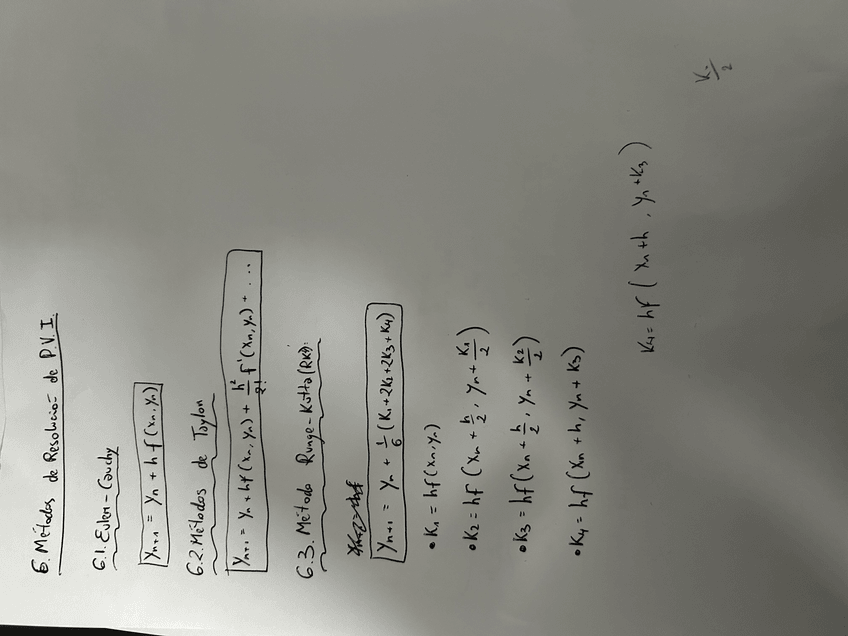 6. Métodos de Resolución de P.V.I.
6.1. Euler-Cauchy
Yn+1 = Yn + h f(xn, yn)
6.2. Métodos de Taylor
Yn+1 = Yn + hf(xn, yn) + h²/2! f'(xn, yn) + ...
6.3. Método Runge-Kutta (RK4):
Yn+1 = Yn + 1/6 (K1 + 2K2 + 2K3 + K4)
• K1 = hf(xn, yn)
• K2 = hf(xn + h/2, yn + K1/2)
• K3 = hf(xn + h/2, yn + K2/2)
• K4 = hf(xn + h, yn + K3)
K4 = hf(xn + h, yn + K3)